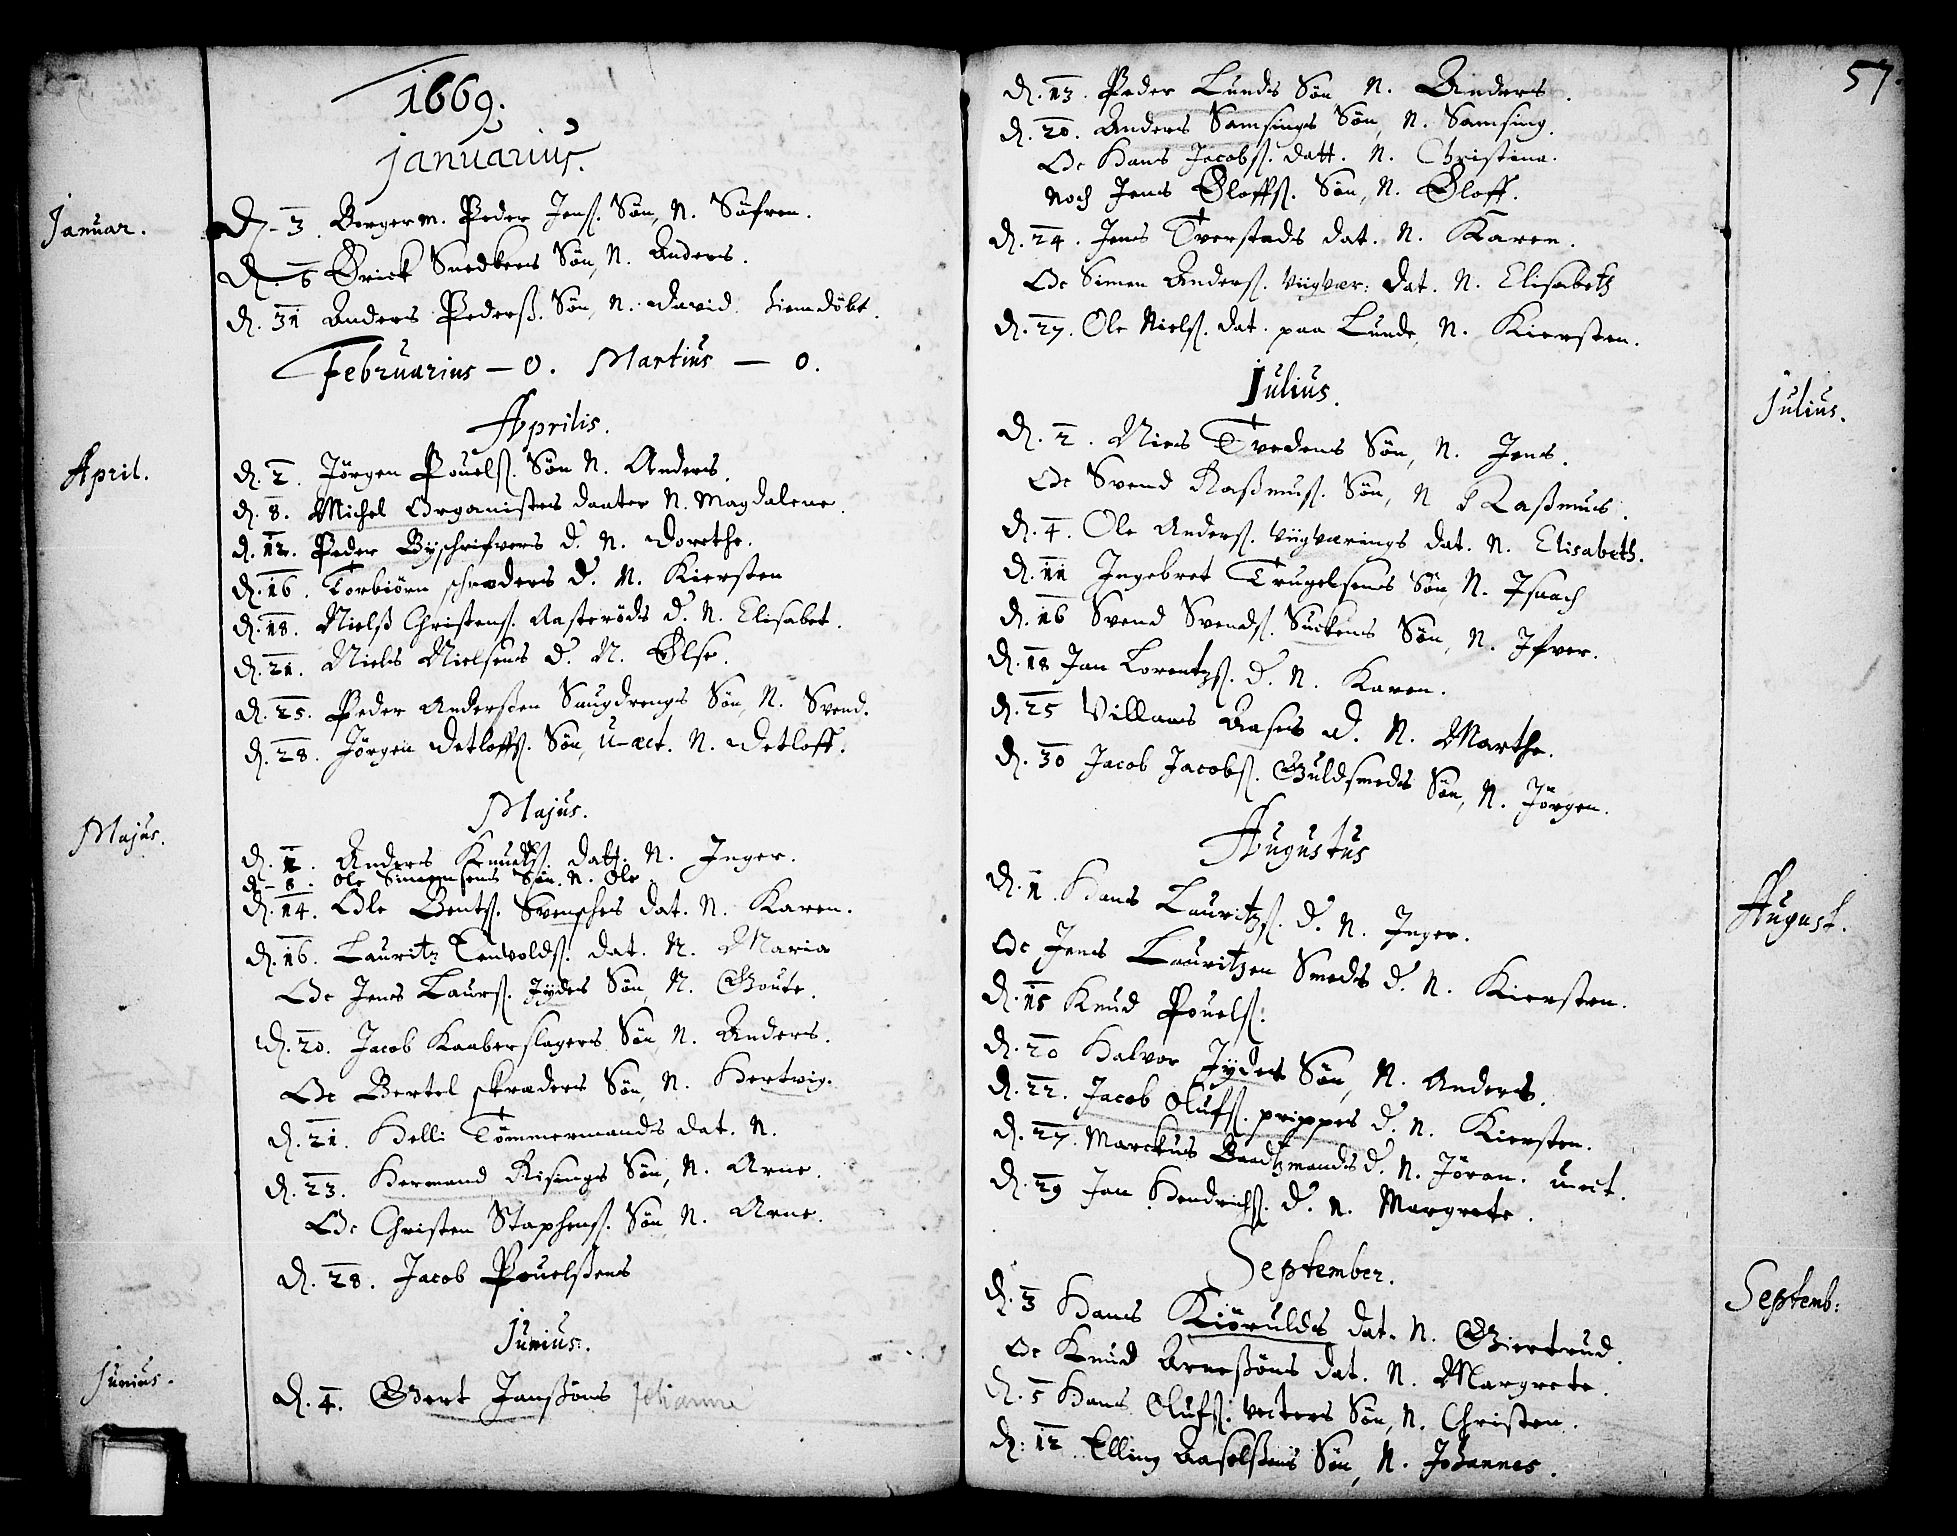 1669.
Januarius.
Januar.
D. 3. Borgerm. Peder Jens. Søn, N. Søfren.
D. 6 Erick Snedkers Søn, N. Anders.
D. 31 Anders Pederß. Søn, N. David hiemdøbt.
Februarius — 0. Martius — 0.
Aprilis.
April.
D. 2. Jørgen Pouels. Søn N. Anders.
D. 8. Michel Organisters daater N. Magdalene.
D. 12. Peder Byschrifvers D. N. Dorethe.
D. 16. Torbiørn schræders D. N. Kiersten
D. 18. Nielß Christens. Aasterøds D. N. Elisabet.
D. 21. Niels Nielsens D. N. Else.
D. 25. Peder Andersen Saugdrengs Søn, N. Svend.
D. 28. Jørgen Detloffs. Søn, u-æct. N. Detloff.
Majus.
Majus.
D. 2. Anders Knuds. datt. N. Inger.
D. 8. Ole Simensens Søn. N. Ole
D. 14. Ole Bents. Svensches dat. N. Karen.
D. 16. Lauritz Tenvolds. dat. N. Maria
Oc Jens Laurs. Jydes Søn, N. Goute.
D. 20. Jacob Kaaberslagers Søn, N. Anders.
Oc Bertel skræders Søn, N. Hertvig.
D. 21. Helli Tømmermands dat. N.
D. 23. Hermand Risings Søn, N. Arne.
Oc Christen Staphens. Søn N. Arne.
D. 28. Jacob Pouelßens
Junius.
Junius.
D. 4. Gert Janßøns Johanne
57.
D. 13. Peder Lunds Søn N. Anders.
D. 20. Anders Samsings Søn, N. Samsing.
Oc Hans Jacobs. datt. N. Christina.
Noch Jens Oloffs. Søn, N. Oloff.
D. 24. Jens Tverstads dat. N. Karen.
Oc Simen Anders. Viigvær: Dat. N. Elisabeth
D. 27. Ole Niels. dat. paa Lunde, N. Kiersten.
Julius.
Julius.
D. 2. Niels Tvedens Søn, N. Jens.
Oc Svend Raßmus. Søn, N Raßmus.
D. 4. Ole Anders. Viigværings dat. N. Elisabeth.
D. 11 Ingebret Trugelsens Søn, N. Isaach
D. 16 Svend Svends. Suckens Søn, N. Ifver.
D. 18 Jan Lorentzs. D. N. Karen.
D. 25 Villams Aases D. N. Marthe.
D. 30 Jacob Jacobs. Guldsmeds Søn, N. Jørgen.
Augustus
August.
D. 1. Hans Lauritzs. D. N. Inger.
Oc Jens Lauritzen Smeds D. N. Kiersten.
D. 15 Knud Pouels.
D. 20 Halvor Jydes Søn, N. Anders.
D. 22. Jacob Olufs. prippes D. N. Kiersten.
D. 27. Marckus Baadtzmands D. N. Jøran. uect.
D. 29 Jan Hendrichs. D. N. Margrete.
September.
Septemb:
D. 3 Hans Kiørulds dat. N. Giertrud.
Oc Knud Arneßøns dat. N. Margrete.
D. 5 Hans Olufs. Søn, N. Christen.
D. 12 Elling Aaselßens Søn, N. Johannes.